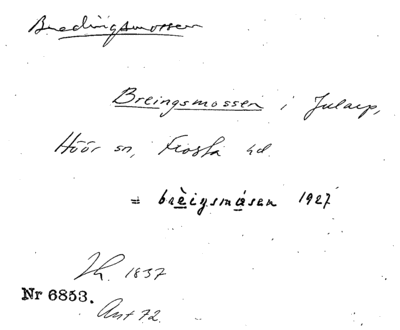 Bredingsmossen
Breingsmossen i Jularp,
Höör sn, Frosta hd.
= brèigsmåsen 1927
Nr 6853.